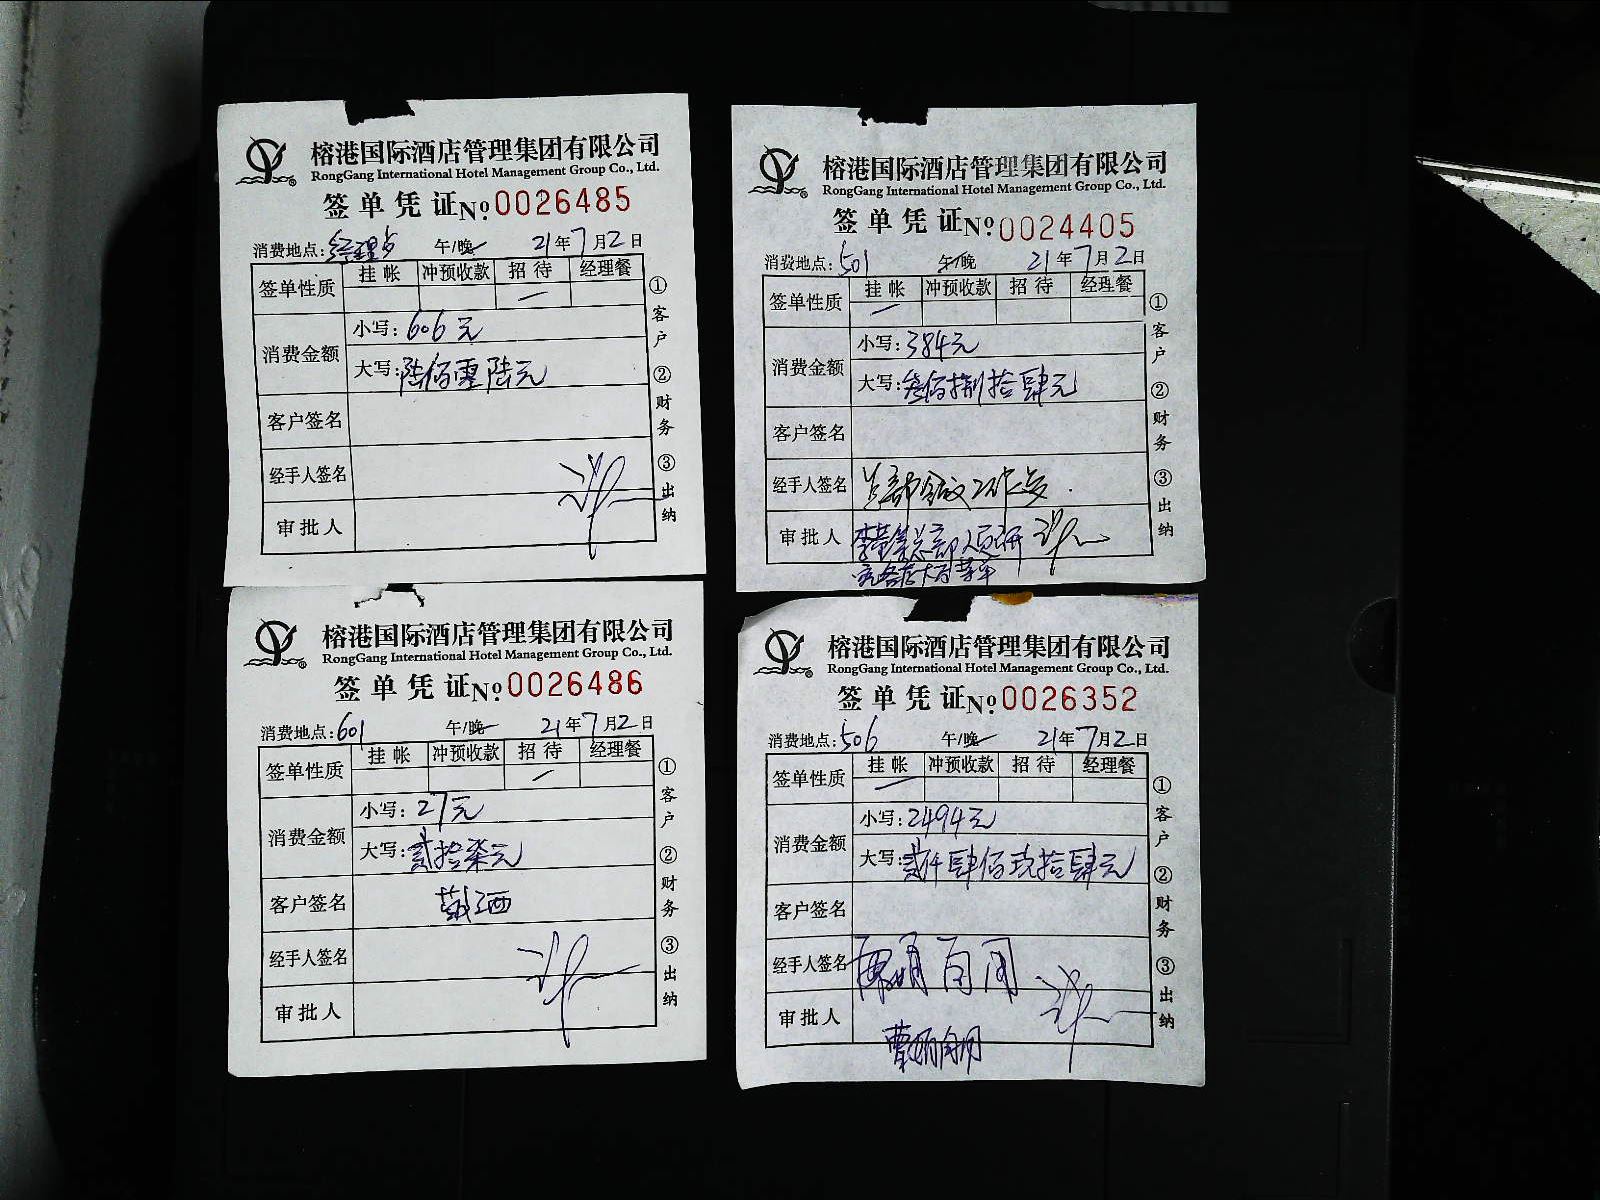 榕港国际酒店管理集团有限公司
RongGang International Hotel Management Group Co., Ltd.
签单凭证No.0026485
消费地点: 午/晚 21年7月2日
签单性质 挂帐 冲预收款 招待 经理餐
消费金额 小写:606元
大写:陆佰零陆元
客户签名
经手人签名
审批人
①客户 ②财务 ③出纳
榕港国际酒店管理集团有限公司
RongGang International Hotel Management Group Co., Ltd.
签单凭证No.0024405
消费地点:501 午/晚 21年7月2日
签单性质 挂帐 冲预收款 招待 经理餐
消费金额 小写:384元
大写:叁佰捌拾肆元
客户签名
经手人签名
审批人
①客户 ②财务 ③出纳
榕港国际酒店管理集团有限公司
RongGang International Hotel Management Group Co., Ltd.
签单凭证No.0026486
消费地点:601 午/晚 21年7月2日
签单性质 挂帐 冲预收款 招待 经理餐
消费金额 小写:27元
大写:贰拾柒元
客户签名
经手人签名
审批人
①客户 ②财务 ③出纳
榕港国际酒店管理集团有限公司
RongGang International Hotel Management Group Co., Ltd.
签单凭证No.0026352
消费地点:506 午/晚 21年7月2日
签单性质 挂帐 冲预收款 招待 经理餐
消费金额 小写:2494元
大写:贰仟肆佰玖拾肆元
客户签名
经手人签名
审批人
①客户 ②财务 ③出纳